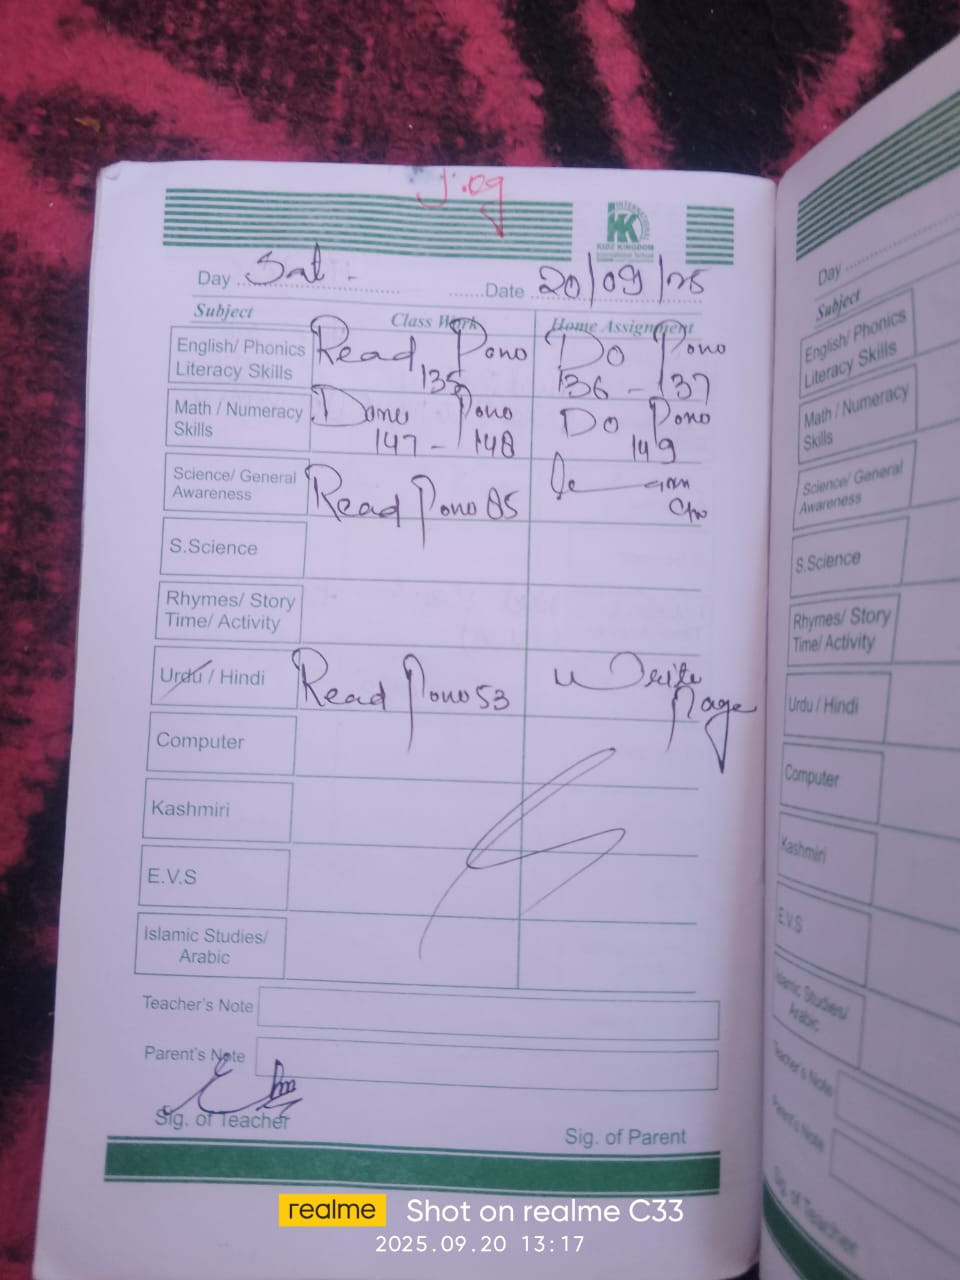 INTERNATIONAL
KIDZ KINGDOM
International School
Day Sat. Date 20/09/25
Subject Class Work Home Assignment
English/ Phonics Literacy Skills Read Pono 135 Do Pono 136 - 137
Math / Numeracy Skills Done Pono 147 - 148 Do Pono 149
Science/ General Awareness Read Pono 85 Learn Cw
S.Science
Rhymes/ Story Time/ Activity
Urdu / Hindi Read Pono 53 Write 1 Page
Computer
Kashmiri
E.V.S
Islamic Studies/ Arabic
Teacher's Note
Parent's Note
Sig. of Teacher
Sig. of Parent
Day
Subject
English/ Phonics Literacy Skills
Math / Numeracy Skills
Science/ General Awareness
S.Science
Rhymes/ Story Time/ Activity
Urdu / Hindi
Computer
Kashmiri
E.V.S
Islamic Studies/ Arabic
Teacher's Note
Parent's Note
Sig. of Teacher
realme Shot on realme C33
2025.09.20 13:17